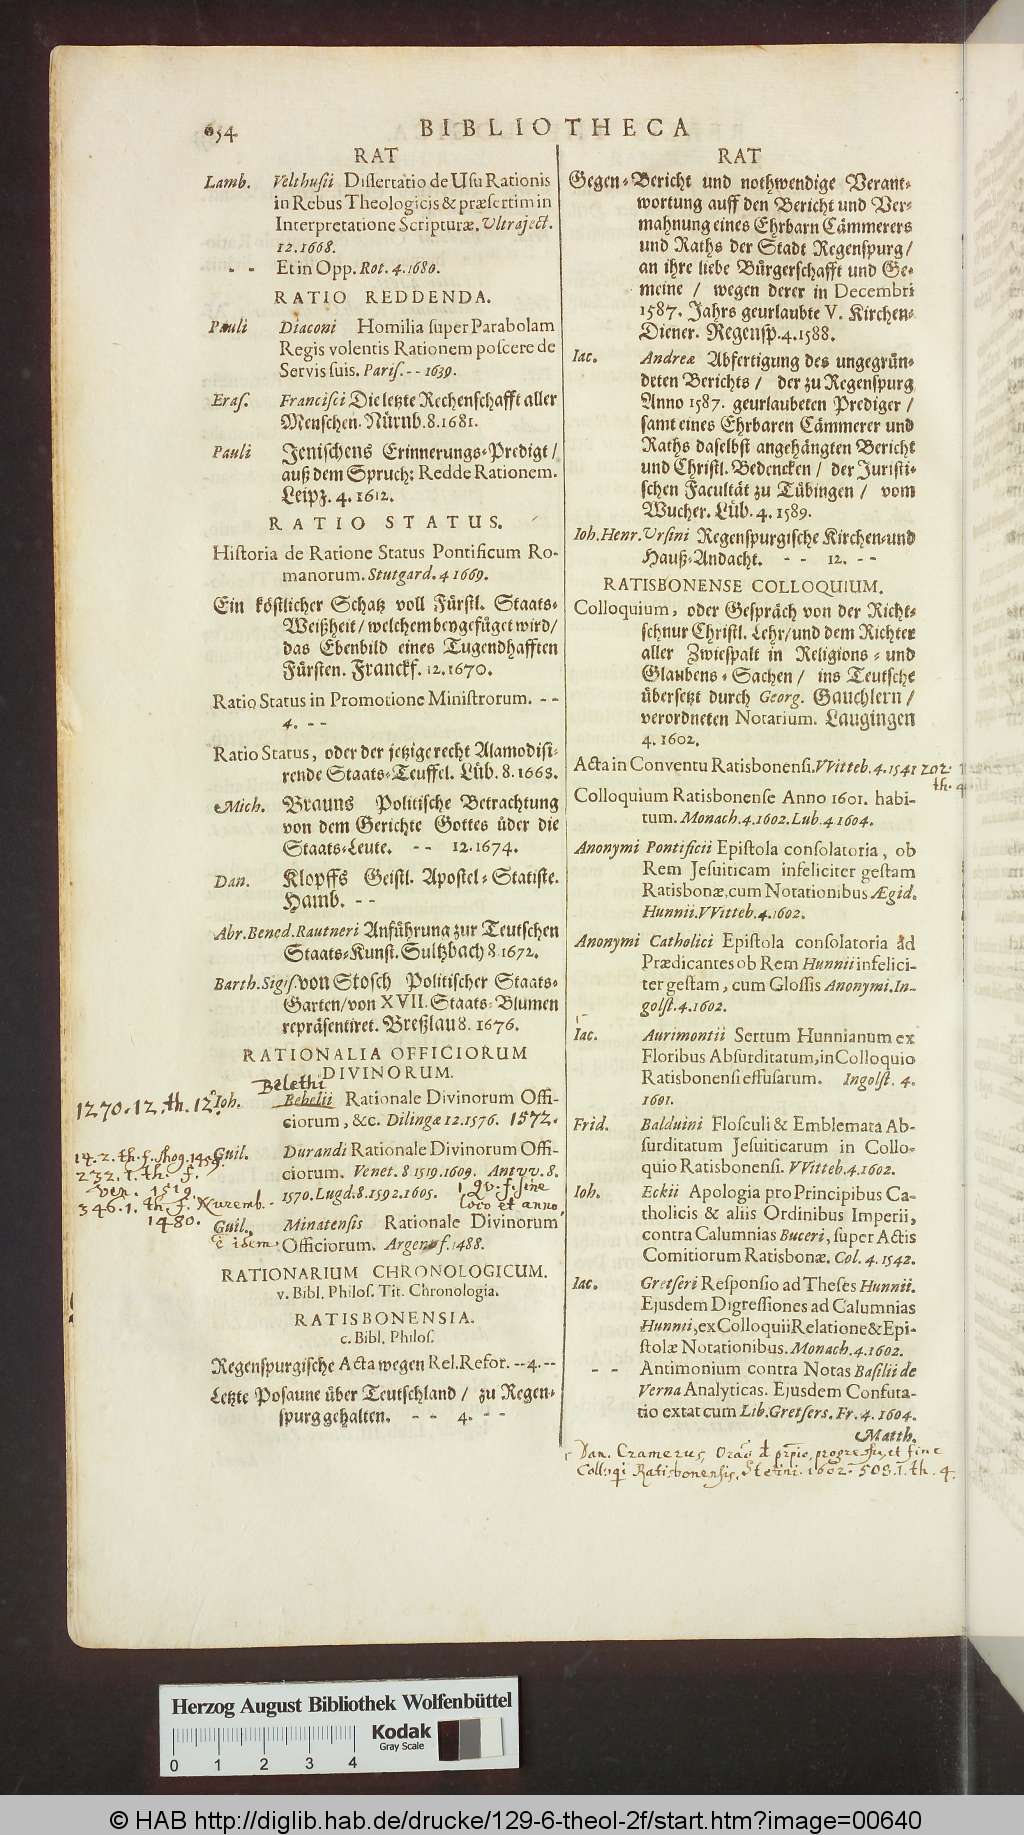 654
BIBLIOTHECA
RAT
Lamb. Velthusii Dissertatio de Usu Rationis
in Rebus Theologicis & præsertim in
Interpretatione Scripturæ. Ultraject.
12. 1668.
- - Et in Opp. Rot. 4. 1680.
RATIO REDDENDA.
Pauli Diaconi Homilia super Parabolam
Regis volentis Rationem poscere de
Servis suis. Paris. - - 1639.
Eras. Francisci Die letzte Rechenschafft aller
Menschen. Nürnb. 8. 1681.
Pauli Jenischens Erinnerungs-Predigt /
auß dem Spruch: Redde Rationem.
Leipz. 4. 1612.
RATIO STATUS.
Historia de Ratione Status Pontificum Ro-
manorum. Stutgard. 4 1669.
Ein köstlicher Schatz voll Fürstl. Staats-
Weißheit / welchem beygefüget wird /
das Ebenbild eines Tugendhafften
Fürsten. Franckf. 12. 1670.
Ratio Status in Promotione Ministrorum. - -
4. - -
Ratio Status, oder der jetzige recht Alamodisi-
rende Staats-Teuffel. Lüb. 8. 1668.
Mich. Brauns Politische Betrachtung
von dem Gerichte Gottes über die
Staats-Leute. - - 12. 1674.
Dan. Klopffs Geistl. Apostel-Statiste.
Hamb. - -
Abr. Bened. Rautneri Anführung zur Teutschen
Staats-Kunst. Sultzbach 8 1672.
Barth. Sigis. von Stosch Politischer Staats-
Garten / von XVII. Staats-Blumen
repräsentiret. Breßlau 8. 1676.
RATIONALIA OFFICIORUM
DIVINORUM.
Belethi
1270. 12. th. 12º Ioh. Bebelii Rationale Divinorum Offi-
ciorum, &c. Dilingæ 12. 1576. 1572.
14. 2. th. f. 1459.
Guil. Durandi Rationale Divinorum Offi-
232. 1. th. f.
ciorum. Venet. 8 1519. 1609. Antvv. 8.
Ven. 1519.
1570. Lugd. 8. 1592. 1605. 1 Qv. f. sine
346. 1. th. f. Nuremb.
loco et anno.
1480.
Guil. Minatensis Rationale Divinorum
è idem. Officiorum. Argent. f. 1488.
RATIONARIUM CHRONOLOGICUM.
v. Bibl. Philos. Tit. Chronologia.
RATISBONENSIA.
c. Bibl. Philos.
Regenspurgische Acta wegen Rel. Refor. - - 4. - -
Letzte Posaune über Teutschland / zu Regen-
spurg gehalten. - - 4. - -
RAT
Gegen-Bericht und nothwendige Verant-
wortung auff den Bericht und Ver-
mahnung eines Ehrbarn Cämmerers
und Raths der Stadt Regenspurg /
an ihre liebe Bürgerschafft und Ge-
meine / wegen derer in Decembri
1587. Jahrs geurlaubte V. Kirchen-
Diener. Regensp. 4. 1588.
Iac. Andreæ Abfertigung des ungegrün-
deten Berichts / der zu Regenspurg
Anno 1587. geurlaubeten Prediger /
samt eines Ehrbaren Cämmerer und
Raths daselbst angehängten Bericht
und Christl. Bedencken / der Juristi-
schen Facultät zu Tübingen / vom
Wucher. Lüb. 4. 1589.
Ioh. Henr. Ursini Regenspurgische Kirchen- und
Hauß-Andacht. - - 12. - -
RATISBONENSE COLLOQUIUM.
Colloquium, oder Gespräch von der Richt-
schnur Christl. Lehr / und dem Richter
aller Zwiespalt in Religions- und
Glaubens-Sachen / ins Teutsche
übersetzt durch Georg. Gauchlern /
verordneten Notarium. Laugingen
4. 1602.
Acta in Conventu Ratisbonensi. VVitteb. 4. 1541 202.
th. 4
Colloquium Ratisbonense Anno 1601. habi-
tum. Monach. 4. 1602. Lub. 4 1604.
Anonymi Pontificii Epistola consolatoria, ob
Rem Jesuiticam infeliciter gestam
Ratisbonæ, cum Notationibus Ægid.
Hunnii. VVitteb. 4. 1602.
Anonymi Catholici Epistola consolatoria ad
Prædicantes ob Rem Hunnii infelici-
ter gestam, cum Glossis Anonymi. In-
golst. 4. 1602.
Iac. Aurimontii Sertum Hunnianum ex
Floribus Absurditatum, in Colloquio
Ratisbonensi effusarum. Ingolst. 4.
1601.
Frid. Balduini Flosculi & Emblemata Ab-
surditatum Jesuiticarum in Collo-
quio Ratisbonensi. VVitteb. 4. 1602.
Ioh. Eckii Apologia pro Principibus Ca-
tholicis & aliis Ordinibus Imperii,
contra Calumnias Buceri, super Actis
Comitiorum Ratisbonæ. Col. 4. 1542.
Iac. Gretseri Responsio ad Theses Hunnii.
Ejusdem Digressiones ad Calumnias
Hunnii, ex Colloquii Relatione & Epi-
stolæ Notationibus. Monach. 4. 1602.
- - Antimonium contra Notas Basilii de
Verna Analyticas. Ejusdem Confuta-
tio extat cum Lib. Gretsers. Fr. 4. 1604.
Matth.
Dan. Cramerus, Orao progressu, et fine
Colloqi Ratisbonensis. Stetini. 1602. 508. 1. th. 4.
Herzog August Bibliothek Wolfenbüttel
Kodak
Gray Scale
0 1 2 3 4
© HAB http://diglib.hab.de/drucke/129-6-theol-2f/start.htm?image=00640